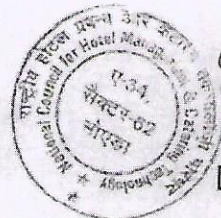 राष्ट्रीय होटल प्रबन्ध और केटरिंग
National Council for Hotel Management & Catering Technology
ए-34,
सैक्टर-62
नोएडा